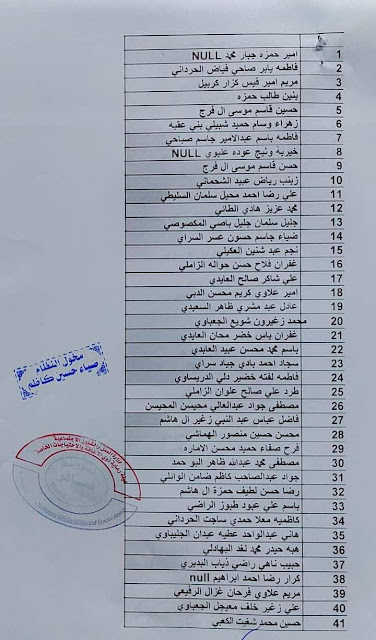 1 امير حمزه جبار محمد NULL
2 فاطمه يابر صاحي فياض الحرداني
3 مريم امير قيس كزار كربيل
4 بنين طالب حمزه
5 حسين قاسم موسى ال فرج
6 زهراء وسام حميد شبيلي بني عقبه
7 فاطمه باسم عبدالامير جاسم صباحي
8 خيرية وثيج عوده عليوي NULL
9 حسن قاسم موسى ال فرج
10 زينب رياض عبيد الشحماني
11 علي رضا احمد محيل سلمان السليطي
12 محمد عزيز هادي الطائي
13 جليل سلمان جليل ياصي المكصوصي
14 ضياء جاسم حسون عسر السراي
15 نجم عبد شنين العكيلي
16 غفران فلاح حسن حواله الزاملي
17 علي شاكر صالح العابدي
18 امير علاوي كريم محسن الدبي
19 عادل عبد مشري ظاهر السعيدي
20 محمد زغيرون شويع الجعباوي
21 غفران ياس خضر محان العابدي
22 باسم محمد محسن عبيد العابدي
23 سجاد احمد بادي جياد سراي
24 فاطمه لفته خضير دلي الدريساوي
25 طرد علي صالح علوان الزاملي
26 مصطفى جواد عبدالعالي محيسن المحيسن
27 فاضل عباس عبد النبي زغير ال هاشم
28 محسن حسين منصور الهماشي
29 فرح صفاء حميد محسن الاماره
30 مصطفى محمد عبدالله ظاهر البو حمد
31 جواد عبدالصاحب كاظم ضامن الوائلي
32 رضا حسن لطيف حمزة ال هاشم
33 باسم علي عبود طبوز الراضي
34 كاظميه معلا حمدي ساجت الحرداني
35 هاني عبدالواحد عطيه عبدان الجليباوي
36 هبه حيدر محمد لغد البهادلي
37 حبيب ناهي راضي ذياب البديري
38 كرار رضا احمد ابراهيم null
39 مريم علاوي فرحان غزال الرفيعي
40 علي زغير خلف معيجل الجعباوي
41 حسين محمد شغيت الكعبي
مخول النظام
ضياء حسين كاظم